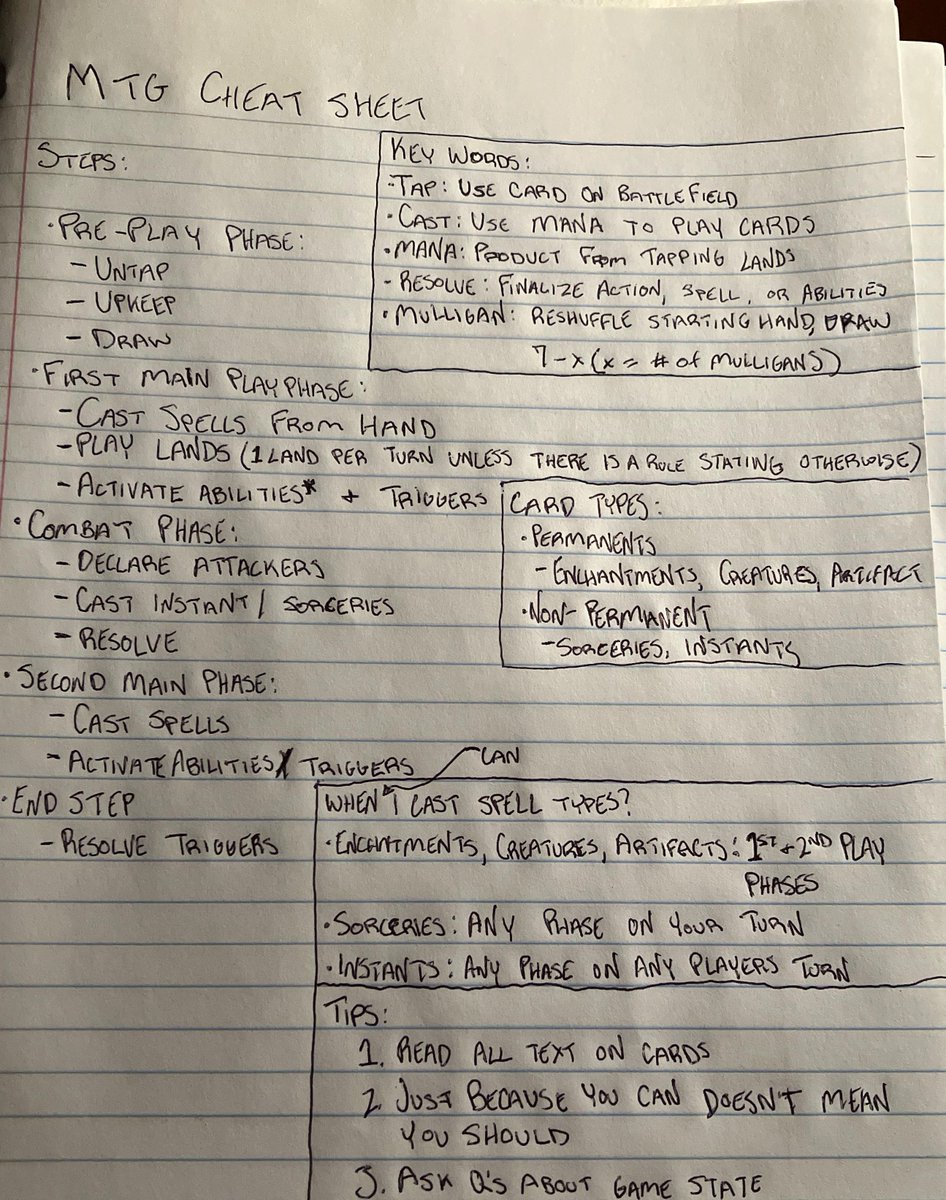 MTG CHEAT SHEET
STEPS:
·PRE-PLAY PHASE:
- UNTAP
- UPKEEP
- DRAW
KEY WORDS:
·TAP: USE CARD ON BATTLEFIELD
·CAST: USE MANA TO PLAY CARDS
·MANA: PRODUCT FROM TAPPING LANDS
- RESOLVE: FINALIZE ACTION, SPELL, OR ABILITIES
·MULLIGAN: RESHUFFLE STARTING HAND, DRAW
7-x (x = # of MULLIGANS)
·FIRST MAIN PLAY PHASE:
- CAST SPELLS FROM HAND
- PLAY LANDS (1 LAND PER TURN UNLESS THERE IS A RULE STATING OTHERWISE)
- ACTIVATE ABILITIES* + TRIGGERS
·COMBAT PHASE:
- DECLARE ATTACKERS
- CAST INSTANT / SORCERIES
- RESOLVE
CARD TYPES:
·PERMANENTS
- ENCHANTMENTS, CREATURES, ARTIFACT
·NON-PERMANENT
- SORCERIES, INSTANTS
·SECOND MAIN PHASE:
- CAST SPELLS
- ACTIVATE ABILITIES/ TRIGGERS
·END STEP
- RESOLVE TRIGGERS
CAN
WHEN I CAST SPELL TYPES?
·ENCHANTMENTS, CREATURES, ARTIFACTS: 1ST + 2ND PLAY
PHASES
·SORCERIES: ANY PHASE ON YOUR TURN
·INSTANTS: ANY PHASE ON ANY PLAYERS TURN
TIPS:
1. READ ALL TEXT ON CARDS
2. JUST BECAUSE YOU CAN DOESN'T MEAN
YOU SHOULD
3. ASK Q'S ABOUT GAME STATE